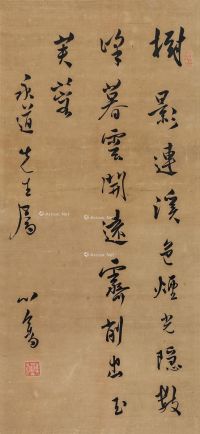 樹影連溪色煙光隱數
峰暮雲開遠霽削出玉
芙蓉
永道先生屬
心畬